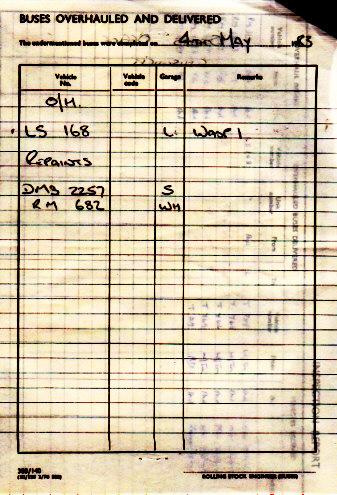 BUSES OVERHAULED AND DELIVERED
The undermentioned buses were completed on 4th May 1983
Vehicle No. Vehicle code Garage Remarks
O/H.
LS 168 L.
REPAINTS
DMS 2257 S
RM 682 WH
ROLLING STOCK ENGINEER (BUSES)